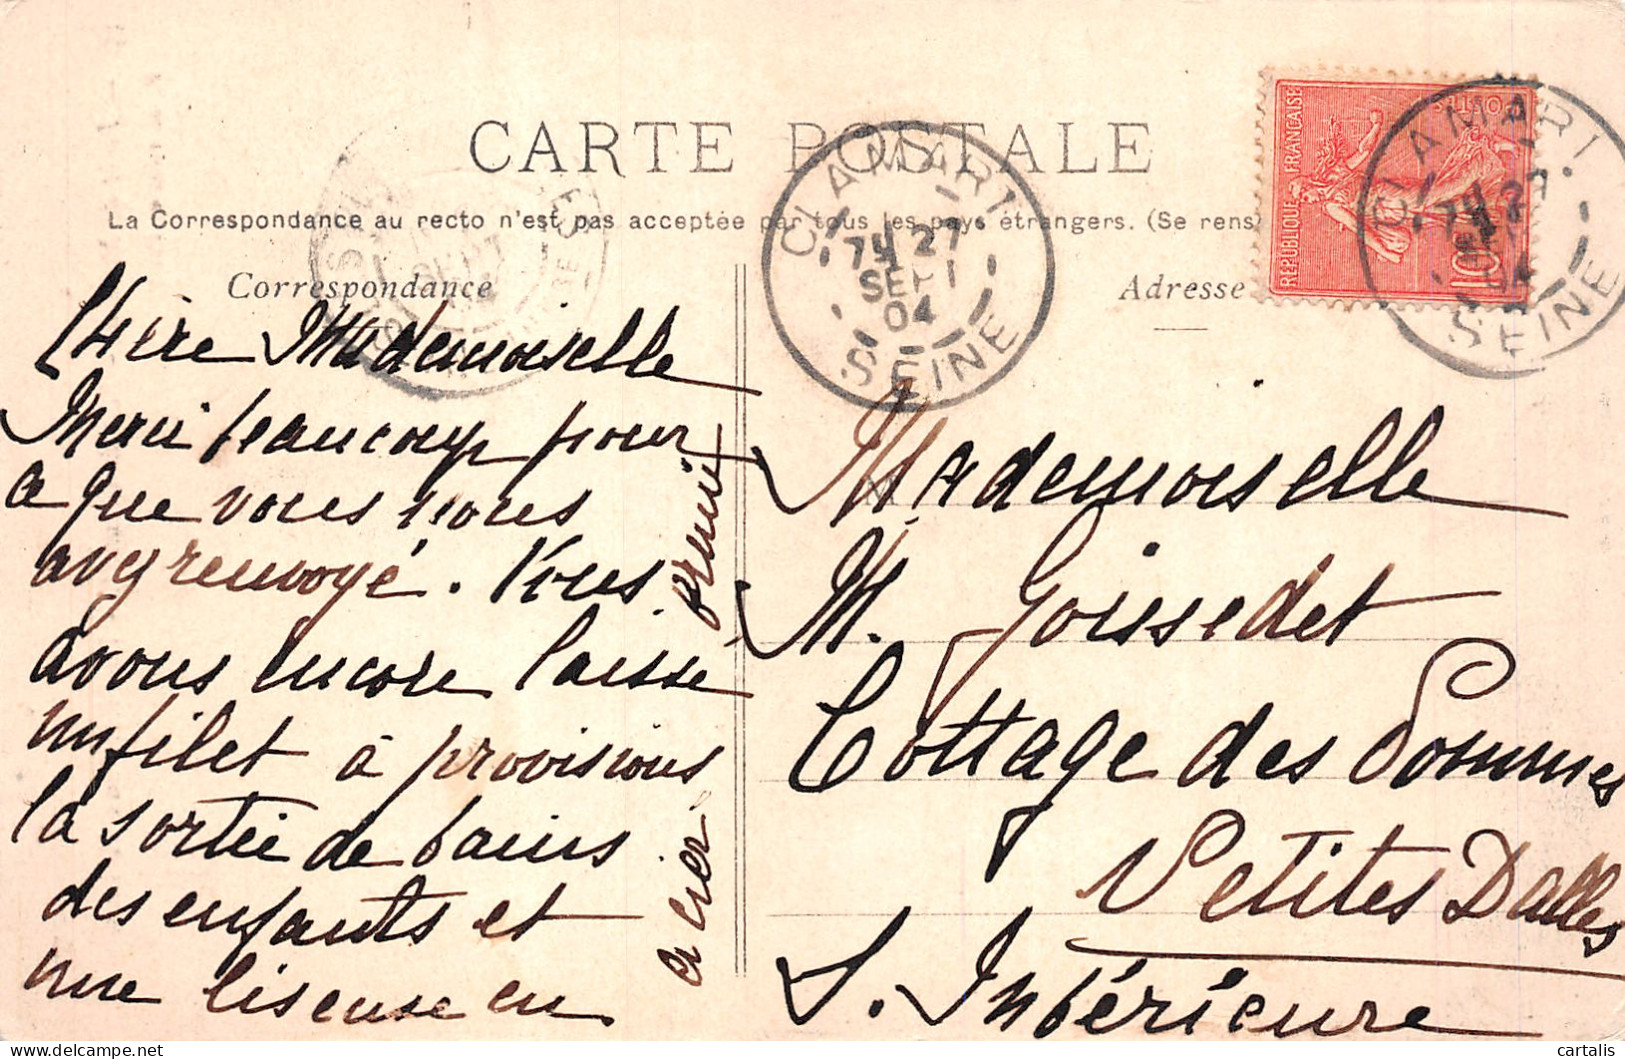 CARTE POSTALE
La Correspondance au recto n'est pas acceptée par tous les pays étrangers. (Se rens
Correspondance
Adresse
REPUBLIQUE FRANCAISE
POSTES
10
CLAMART
7M 27
SEPT
04
SEINE
CLAMART
7M 27
04
SEINE
Chère Mademoiselle
Merci beaucoup pour
ce que vous nous
avez renvoyé. Nous
avons encore laissé
un filet à provisions
la sortie de bains
des enfants et
une liseuse en
Mademoiselle
M. Goissedet
Cottage des Pommes
Petites Dalles
S. Inférieure
cartalis